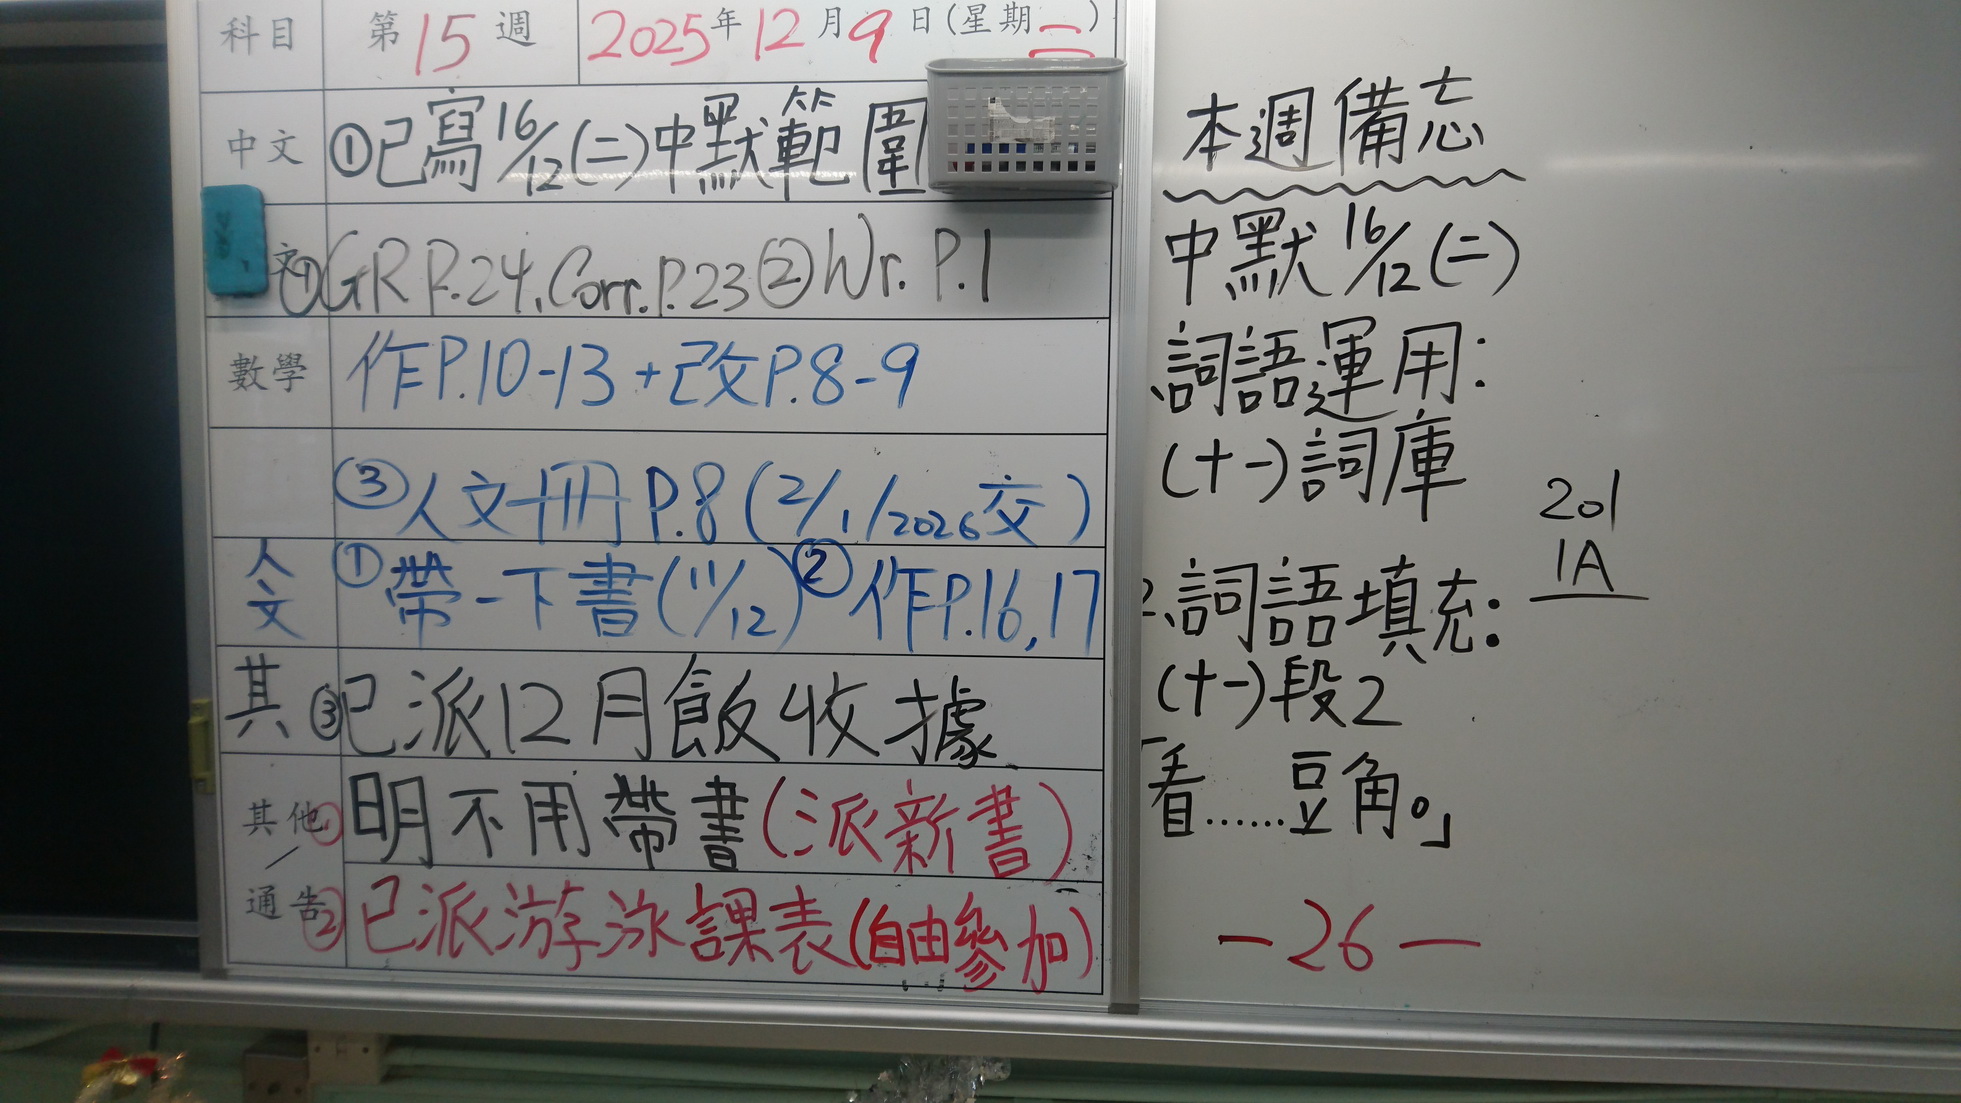 科目 第15週 2025年12月9日(星期二)
中文 ①已寫16/12(二)中默範圍
文 ①GR P.24, Corr. P.23 ②Wr. P.1
數學 作P.10-13+改P.8-9
③人文冊P.8(2/1/2026交)
人文 ①帶一下書(11/12) ②作P.16,17
其 ③已派12月飯收據
其他/通告 ①明不用帶書(派新書)
②已派游泳課表(自由參加)
本週備忘
中默16/12(二)
、詞語運用:
(十一)詞庫
2、詞語填充:
(十一)段2
「看……豆角。」
-26-
201
1A